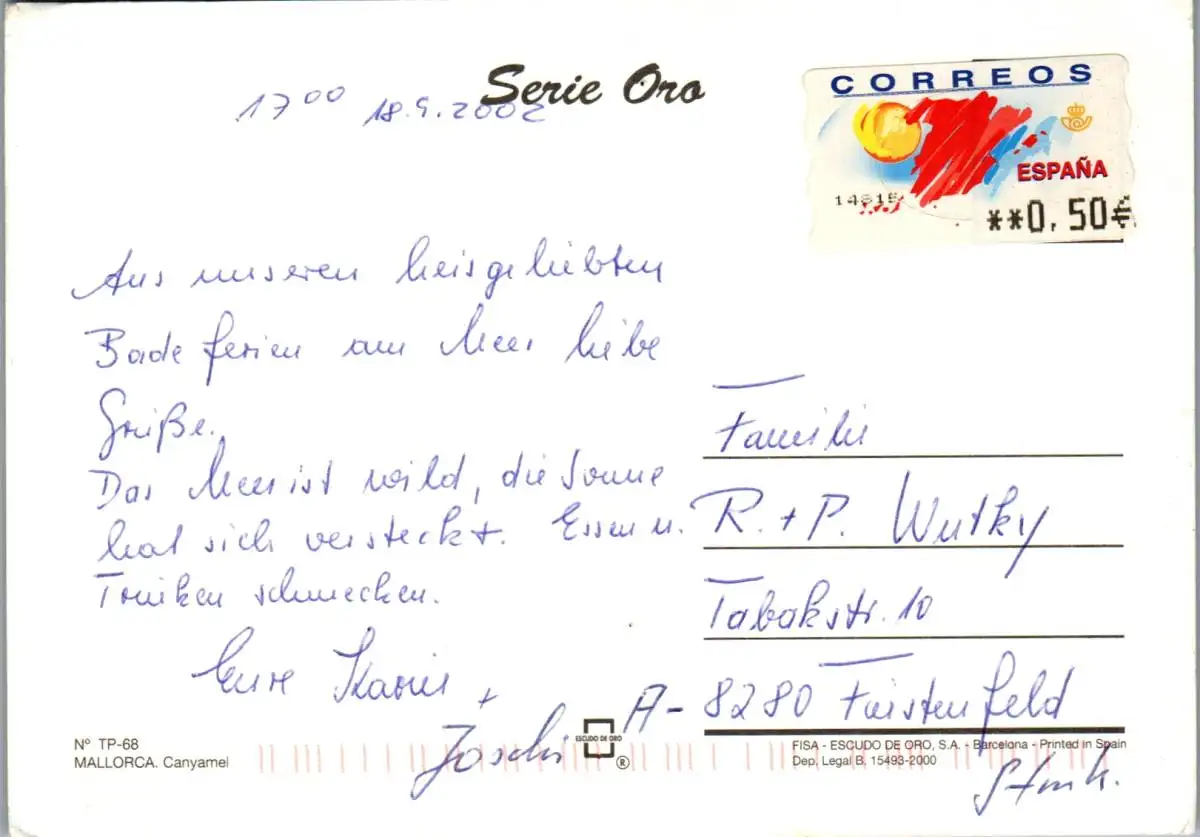 Serie Oro
17 00 18.9.2002
CORREOS
ESPAÑA
14815
**0,50€
Aus unseren heisgeliebten
Badeferien am Meer liebe
Grüße.
Das Meer ist wild, die Sonne
hat sich versteckt. Essen u.
Trinken schmecken.
Eure Karin +
Joschi
Familie
R. + P. Wutky
Tabakstr. 10
A-8280 Fürstenfeld
Stmk.
Nº TP-68
MALLORCA. Canyamel
ESCUDO DE ORO
®
FISA - ESCUDO DE ORO, S.A. - Barcelona - Printed in Spain
Dep. Legal B. 15493-2000